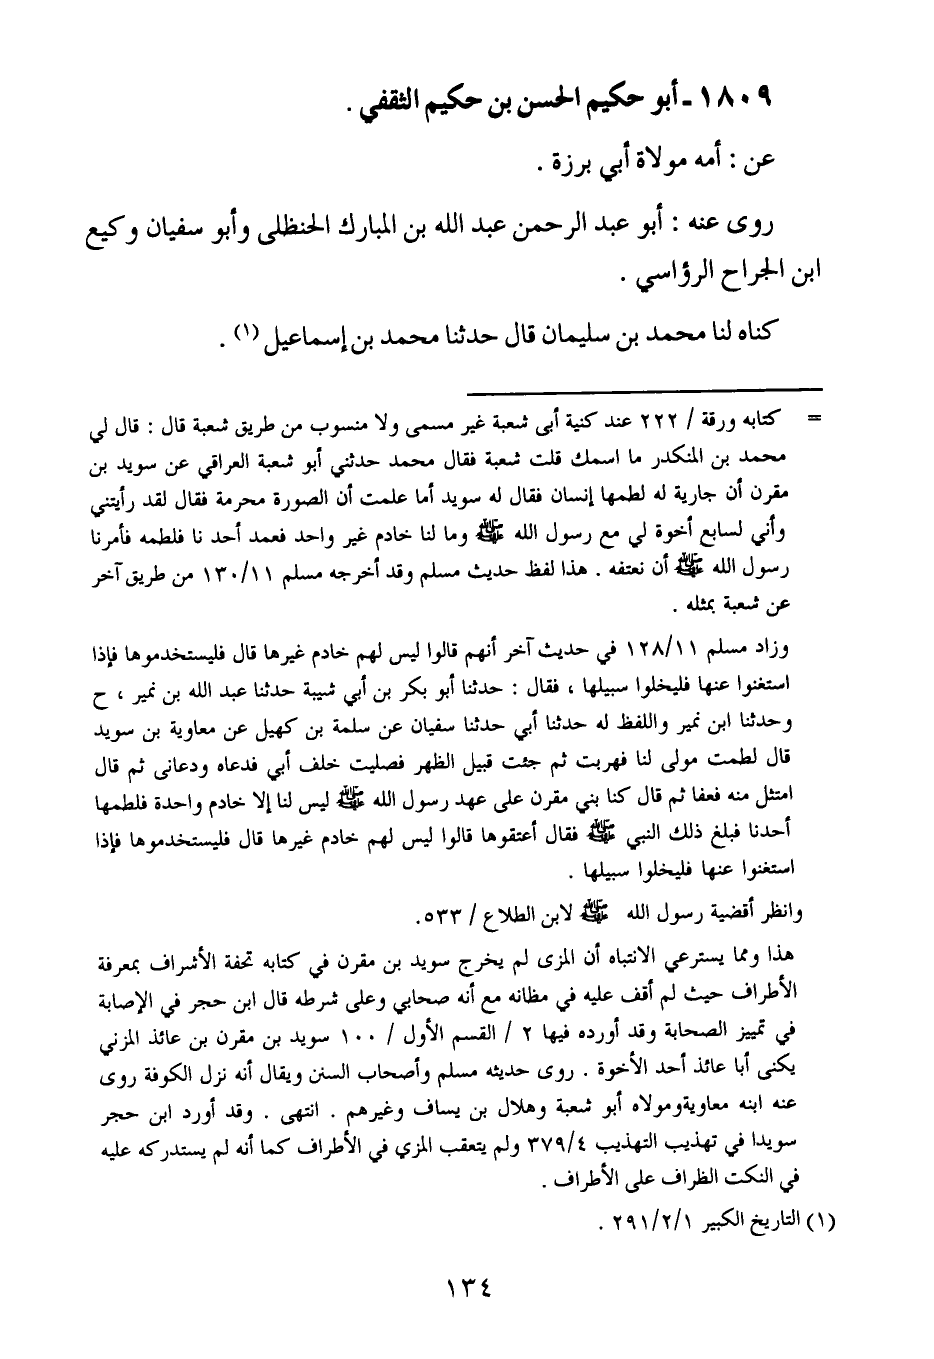 ١٨٠٩ - أبو حكيم الحسن بن حكيم الثقفي .
عن : أمه مولاة أبي برزة .
روى عنه : أبو عبد الرحمن عبد الله بن المبارك الحنظلى وأبو سفيان وكيع
ابن الجراح الرؤاسي .
كناه لنا محمد بن سليمان قال حدثنا محمد بن إسماعيل (١) .
= كتابه ورقة / ٢٢٢ عند كنية أبى شعبة غير مسمى ولا منسوب من طريق شعبة قال : قال لي
محمد بن المنكدر ما اسمك قلت شعبة فقال محمد حدثني أبو شعبة العراقي عن سويد بن
مقرن أن جارية له لطمها إنسان فقال له سويد أما علمت أن الصورة محرمة فقال لقد رأيتني
وأني لسابع أخوة لي مع رسول الله ﷺ وما لنا خادم غير واحد فعمد أحد نا فلطمه فأمرنا
رسول الله ﷺ أن نعتفه . هذا لفظ حديث مسلم وقد أخرجه مسلم ١٣٠/١١ من طريق آخر
عن شعبة بمثله .
وزاد مسلم ١٢٨/١١ في حديث آخر أنهم قالوا ليس لهم خادم غيرها قال فليستخدموها فإذا
استغنوا عنها فليخلوا سبيلها ، فقال : حدثنا أبو بكر بن أبي شيبة حدثنا عبد الله بن نمير ، ح
وحدثنا ابن نمير واللفظ له حدثنا أبي حدثنا سفيان عن سلمة بن كهيل عن معاوية بن سويد
قال لطمت مولى لنا فهربت ثم جئت قبيل الظهر فصليت خلف أبي فدعاه ودعانى ثم قال
امتثل منه فعفا ثم قال كنا بني مقرن على عهد رسول الله ﷺ ليس لنا إلا خادم واحدة فلطمها
أحدنا فبلغ ذلك النبي ﷺ فقال أعتقوها قالوا ليس لهم خادم غيرها قال فليستخدموها فإذا
استغنوا عنها فليخلوا سبيلها .
وانظر أقضية رسول الله ﷺ لابن الطلاع / ٥٣٣.
هذا ومما يسترعي الانتباه أن المزى لم يخرج سويد بن مقرن في كتابه تحفة الأشراف بمعرفة
الأطراف حيث لم أقف عليه في مظانه مع أنه صحابي وعلى شرطه قال ابن حجر في الإصابة
في تمييز الصحابة وقد أورده فيها ٢ / القسم الأول / ١٠٠ سويد بن مقرن بن عائذ المزني
يكنى أبا عائذ أحد الأخوة . روى حديثه مسلم وأصحاب السنن ويقال أنه نزل الكوفة روى
عنه ابنه معاويةومولاه أبو شعبة وهلال بن يساف وغيرهم . انتهى . وقد أورد ابن حجر
سويدا في تهذيب التهذيب ٣٧٩/٤ ولم يتعقب المزي في الأطراف كما أنه لم يستدركه عليه
في النكت الظراف على الأطراف .
(١) التاريخ الكبير ٢٩١/٢/١ .
١٣٤